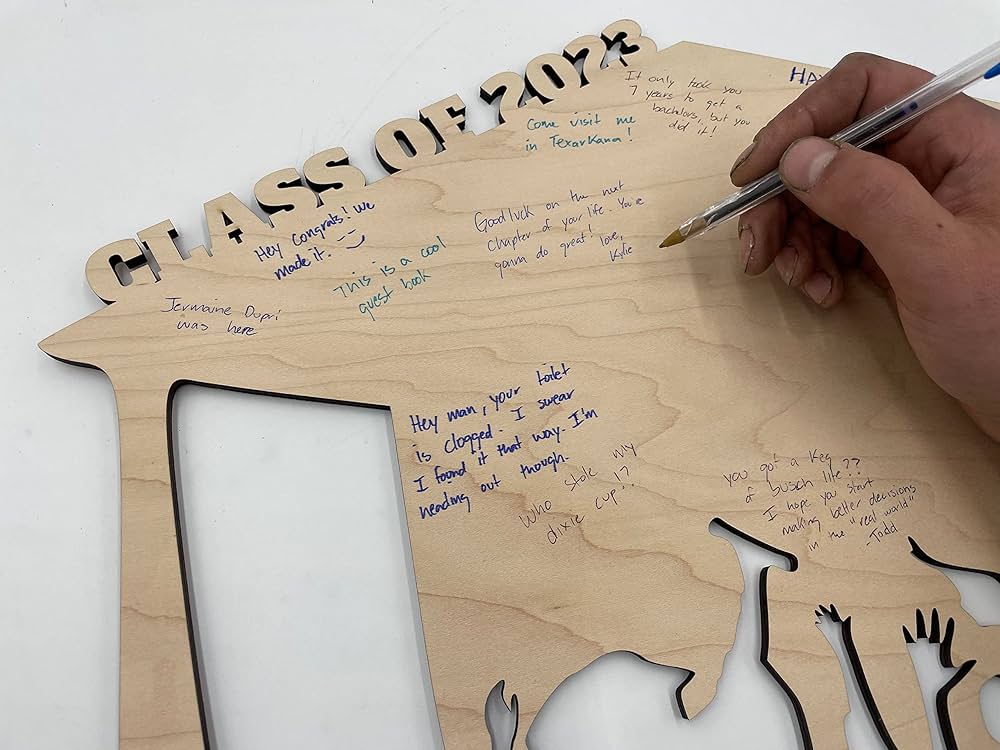 CLASS OF 2023
It only took you
7 years to get a
bachelors, but you
did it!
Come visit me
in Texarkana!
Hey Congrats! We
made it.
This is a cool
guest book
Good luck on the next
Chapter of your life. You're
gonna do great! Love,
Kylie
Jermaine Dupri
was here
Hey man, your toilet
is clogged. I swear
I found it that way. I'm
heading out though.
Who stole my
dixie cup!?
you got a keg
of busch lite??
I hope you start
making better decisions
in the "real world"
-Todd